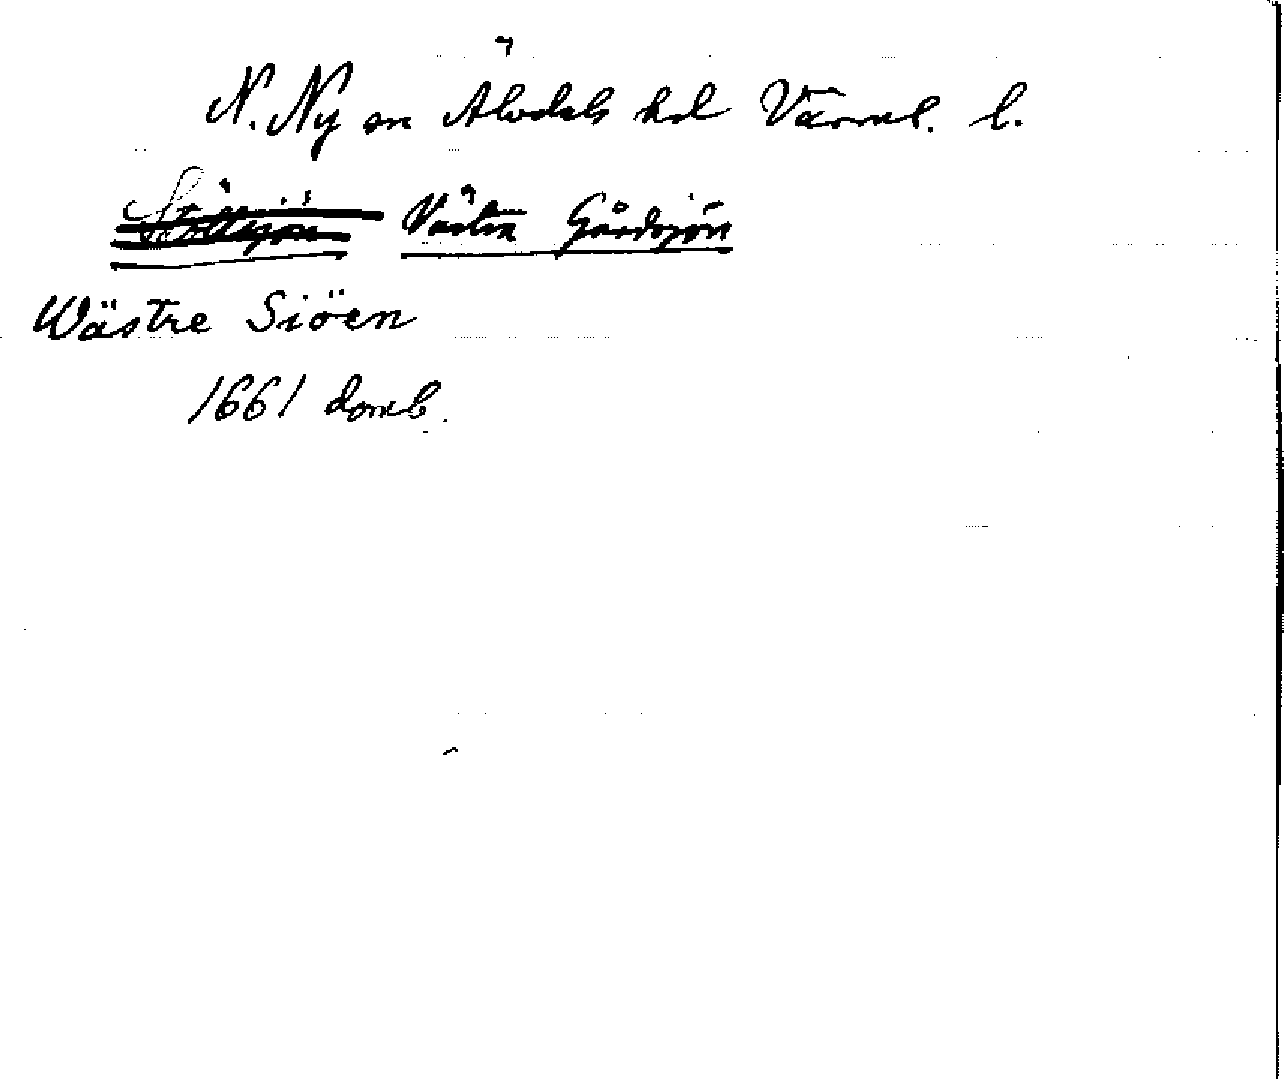 N. Ny sn Älvdals hd Värml. l.
Västra Gårdsjön
Wästre Siöen
1661 domb.